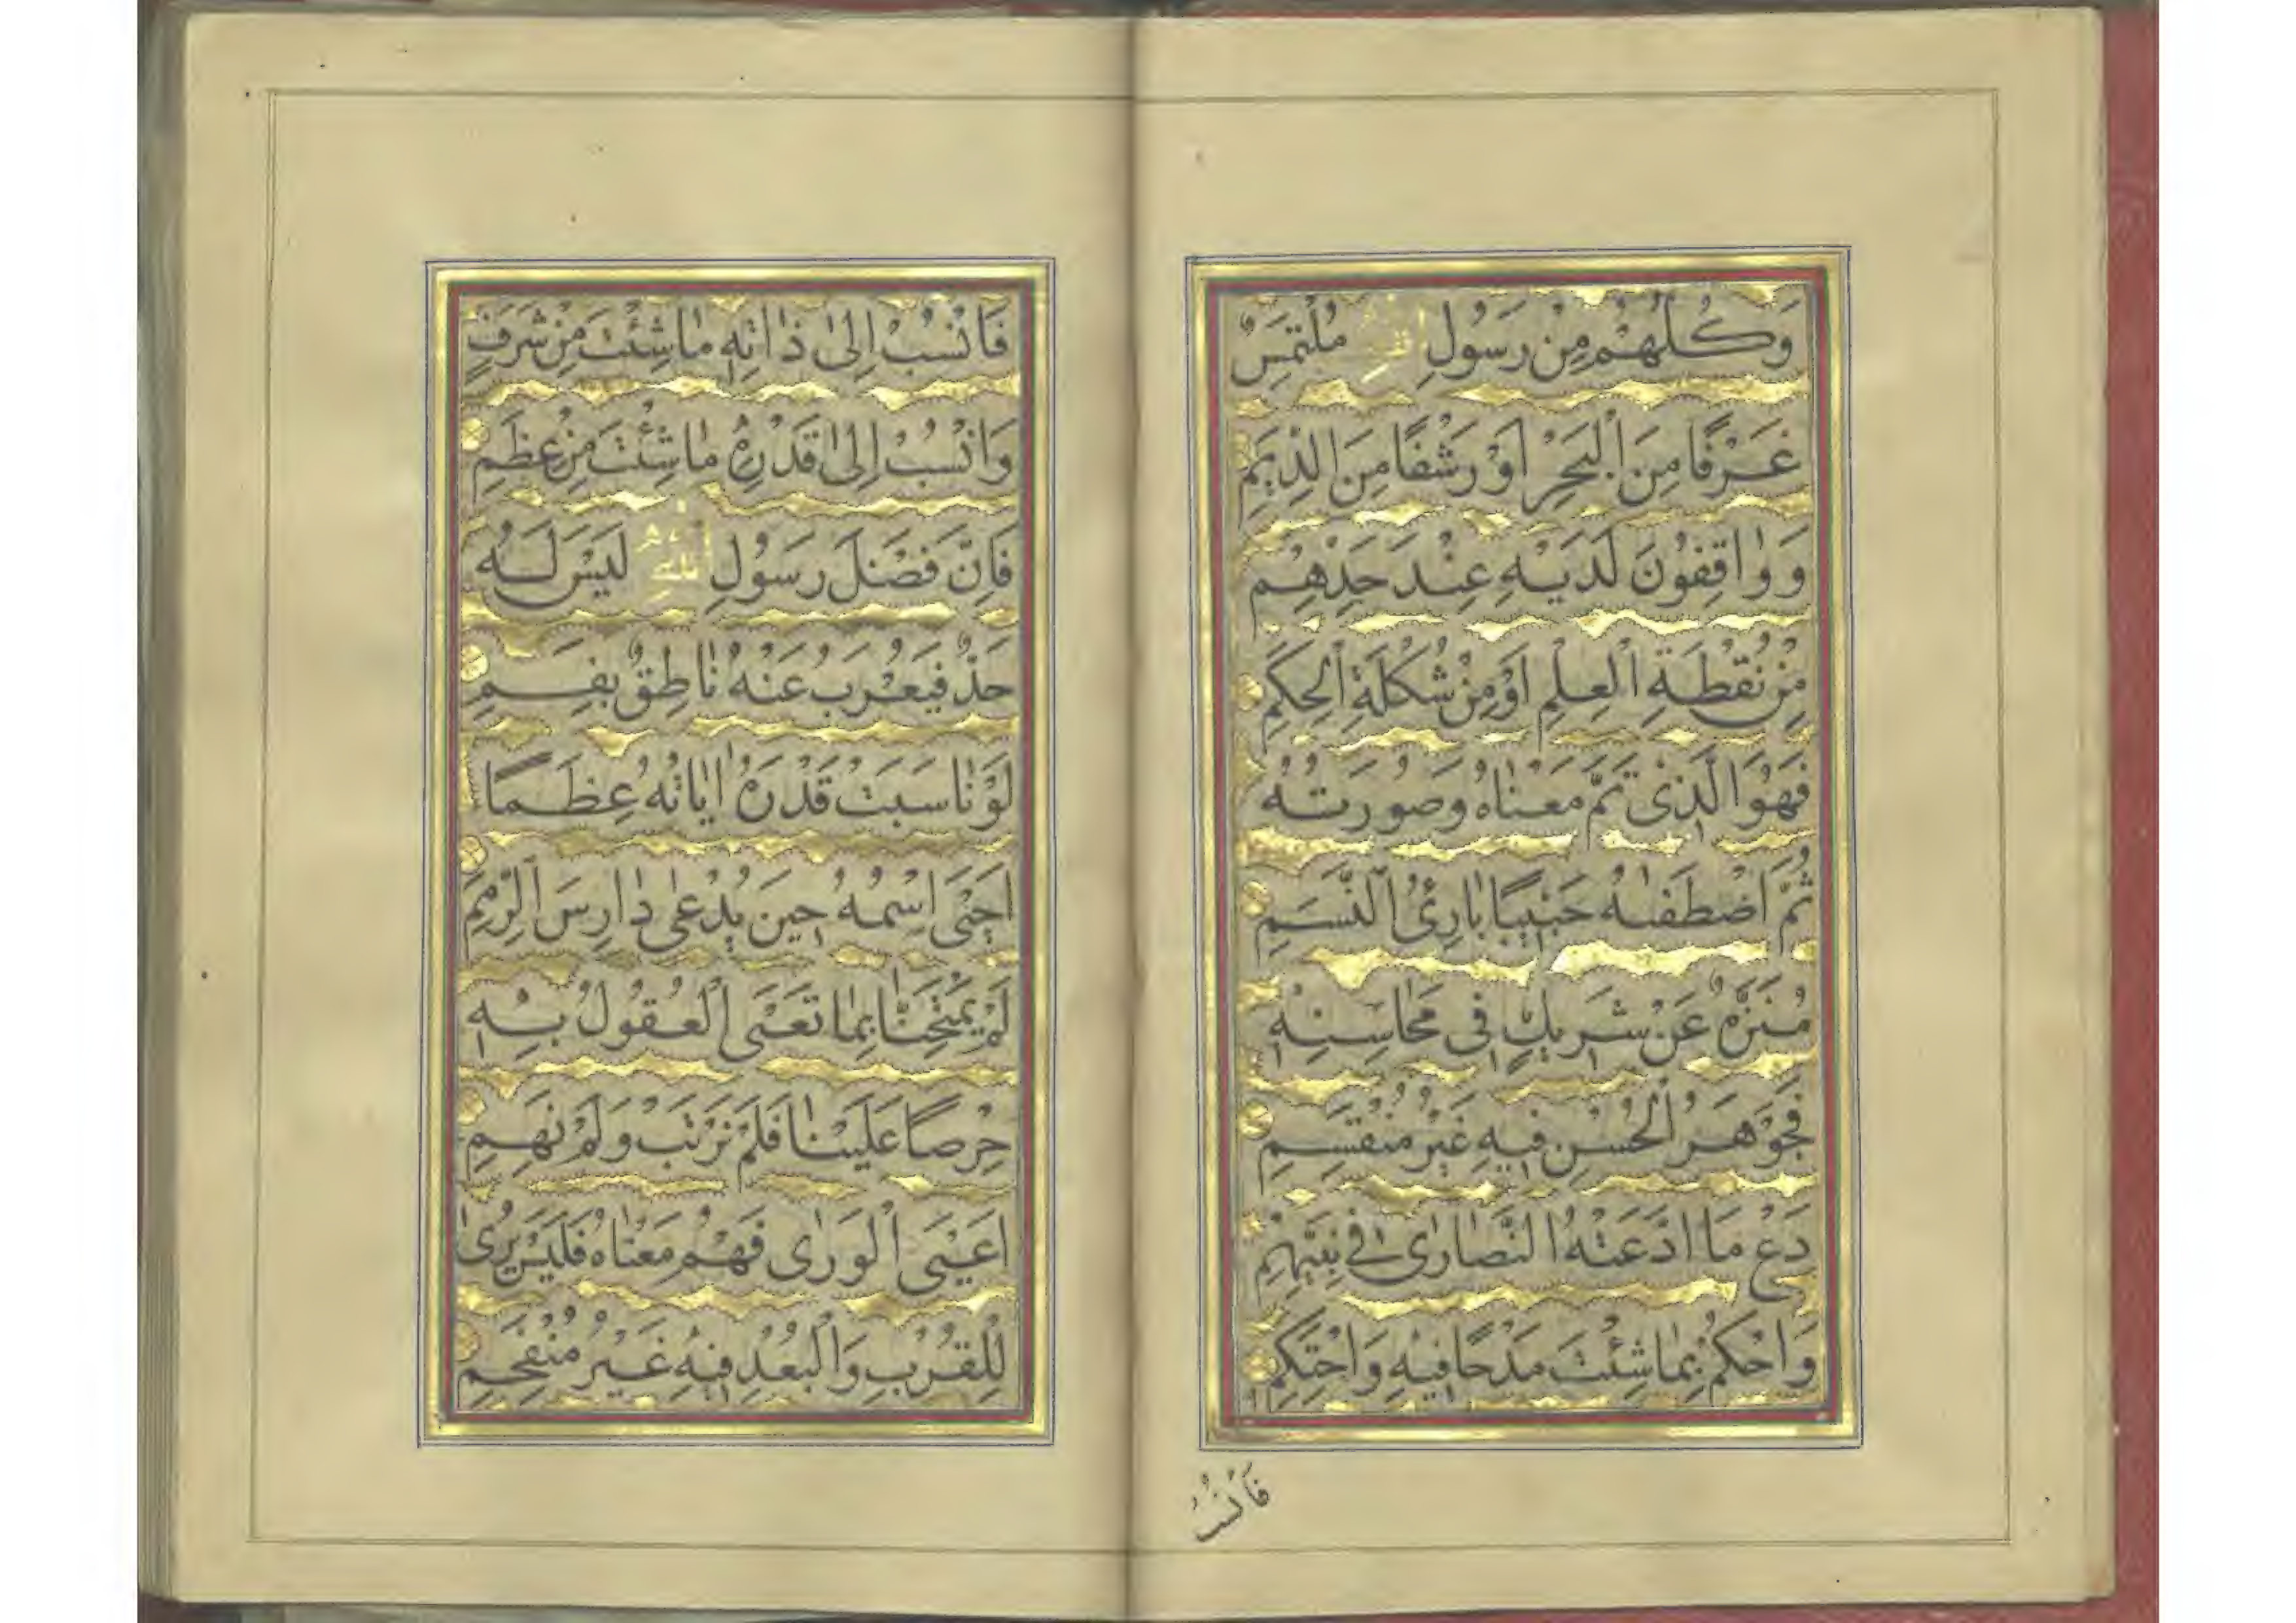 وَكُلُّهُمْ مِنْ رَسُولِ اللهِ مُلْتَمِسٌ
غَرْفًا مِنَ الْبَحْرِ اَوْ رَشْفًا مِنَ الدِّيَمِ
وَوَاقِفُونَ لَدَيْهِ عِنْدَ حَدِّهِمِ
مِنْ نُقْطَةِ الْعِلْمِ اَوْ مِنْ شَكْلَةِ الْحِكَمِ
فَهُوَ الَّذِى تَمَّ مَعْنَاهُ وَصُورَتُهُ
ثُمَّ اصْطَفٰيهُ حَبِيبًا بَارِئُ النَّسَمِ
مُنَزَّهٌ عَنْ شَرِيكٍ فِى مَحَاسِنِهِ
فَجَوْهَرُ الْحُسْنِ فِيهِ غَيْرُ مُنْقَسِمِ
دَعْ مَا ادَّعَتْهُ النَّصَارٰى فِى نَبِيِّهِمِ
وَاحْكُمْ بِمَا شِئْتَ مَدْحًا فِيهِ وَاحْتَكِمِ
فَانْسُبْ
فَانْسُبْ اِلٰى ذَاتِهِ مَا شِئْتَ مِنْ شَرَفٍ
وَانْسُبْ اِلٰى قَدْرِهِ مَا شِئْتَ مِنْ عِظَمِ
فَاِنَّ فَضْلَ رَسُولِ اللهِ لَيْسَ لَهُ
حَدٌّ فَيُعْرِبَ عَنْهُ نَاطِقٌ بِفَمِ
لَوْ نَاسَبَتْ قَدْرَهُ اٰيَاتُهُ عِظَمًا
اَحْيَى اسْمُهُ حِينَ يُدْعٰى دَارِسَ الرِّمَمِ
لَمْ يَمْتَحِنَّا بِمَا تَعْيَى الْعُقُولُ بِهِ
حِرْصًا عَلَيْنَا فَلَمْ نَرْتَبْ وَلَمْ نَهِمِ
اَعْيَى الْوَرٰى فَهْمُ مَعْنَاهُ فَلَيْسَ يُرٰى
لِلْقُرْبِ وَالْبُعْدِ فِيهِ غَيْرُ مُنْفَحِمِ